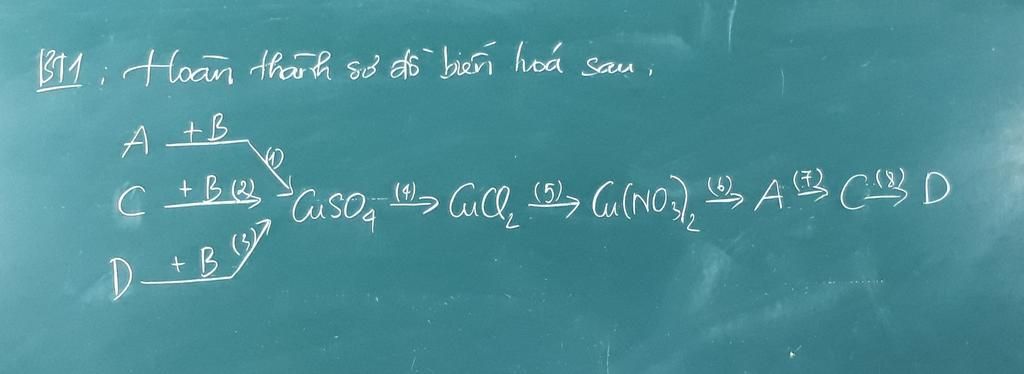 BT1: Hoàn thành sơ đồ biến hoá sau.
A + B (1)
C + B (2) → CuSO₄ (4) → CuCl₂ (5) → Cu(NO₃)₂ (6) → A (7) → C (8) → D
D + B (3)